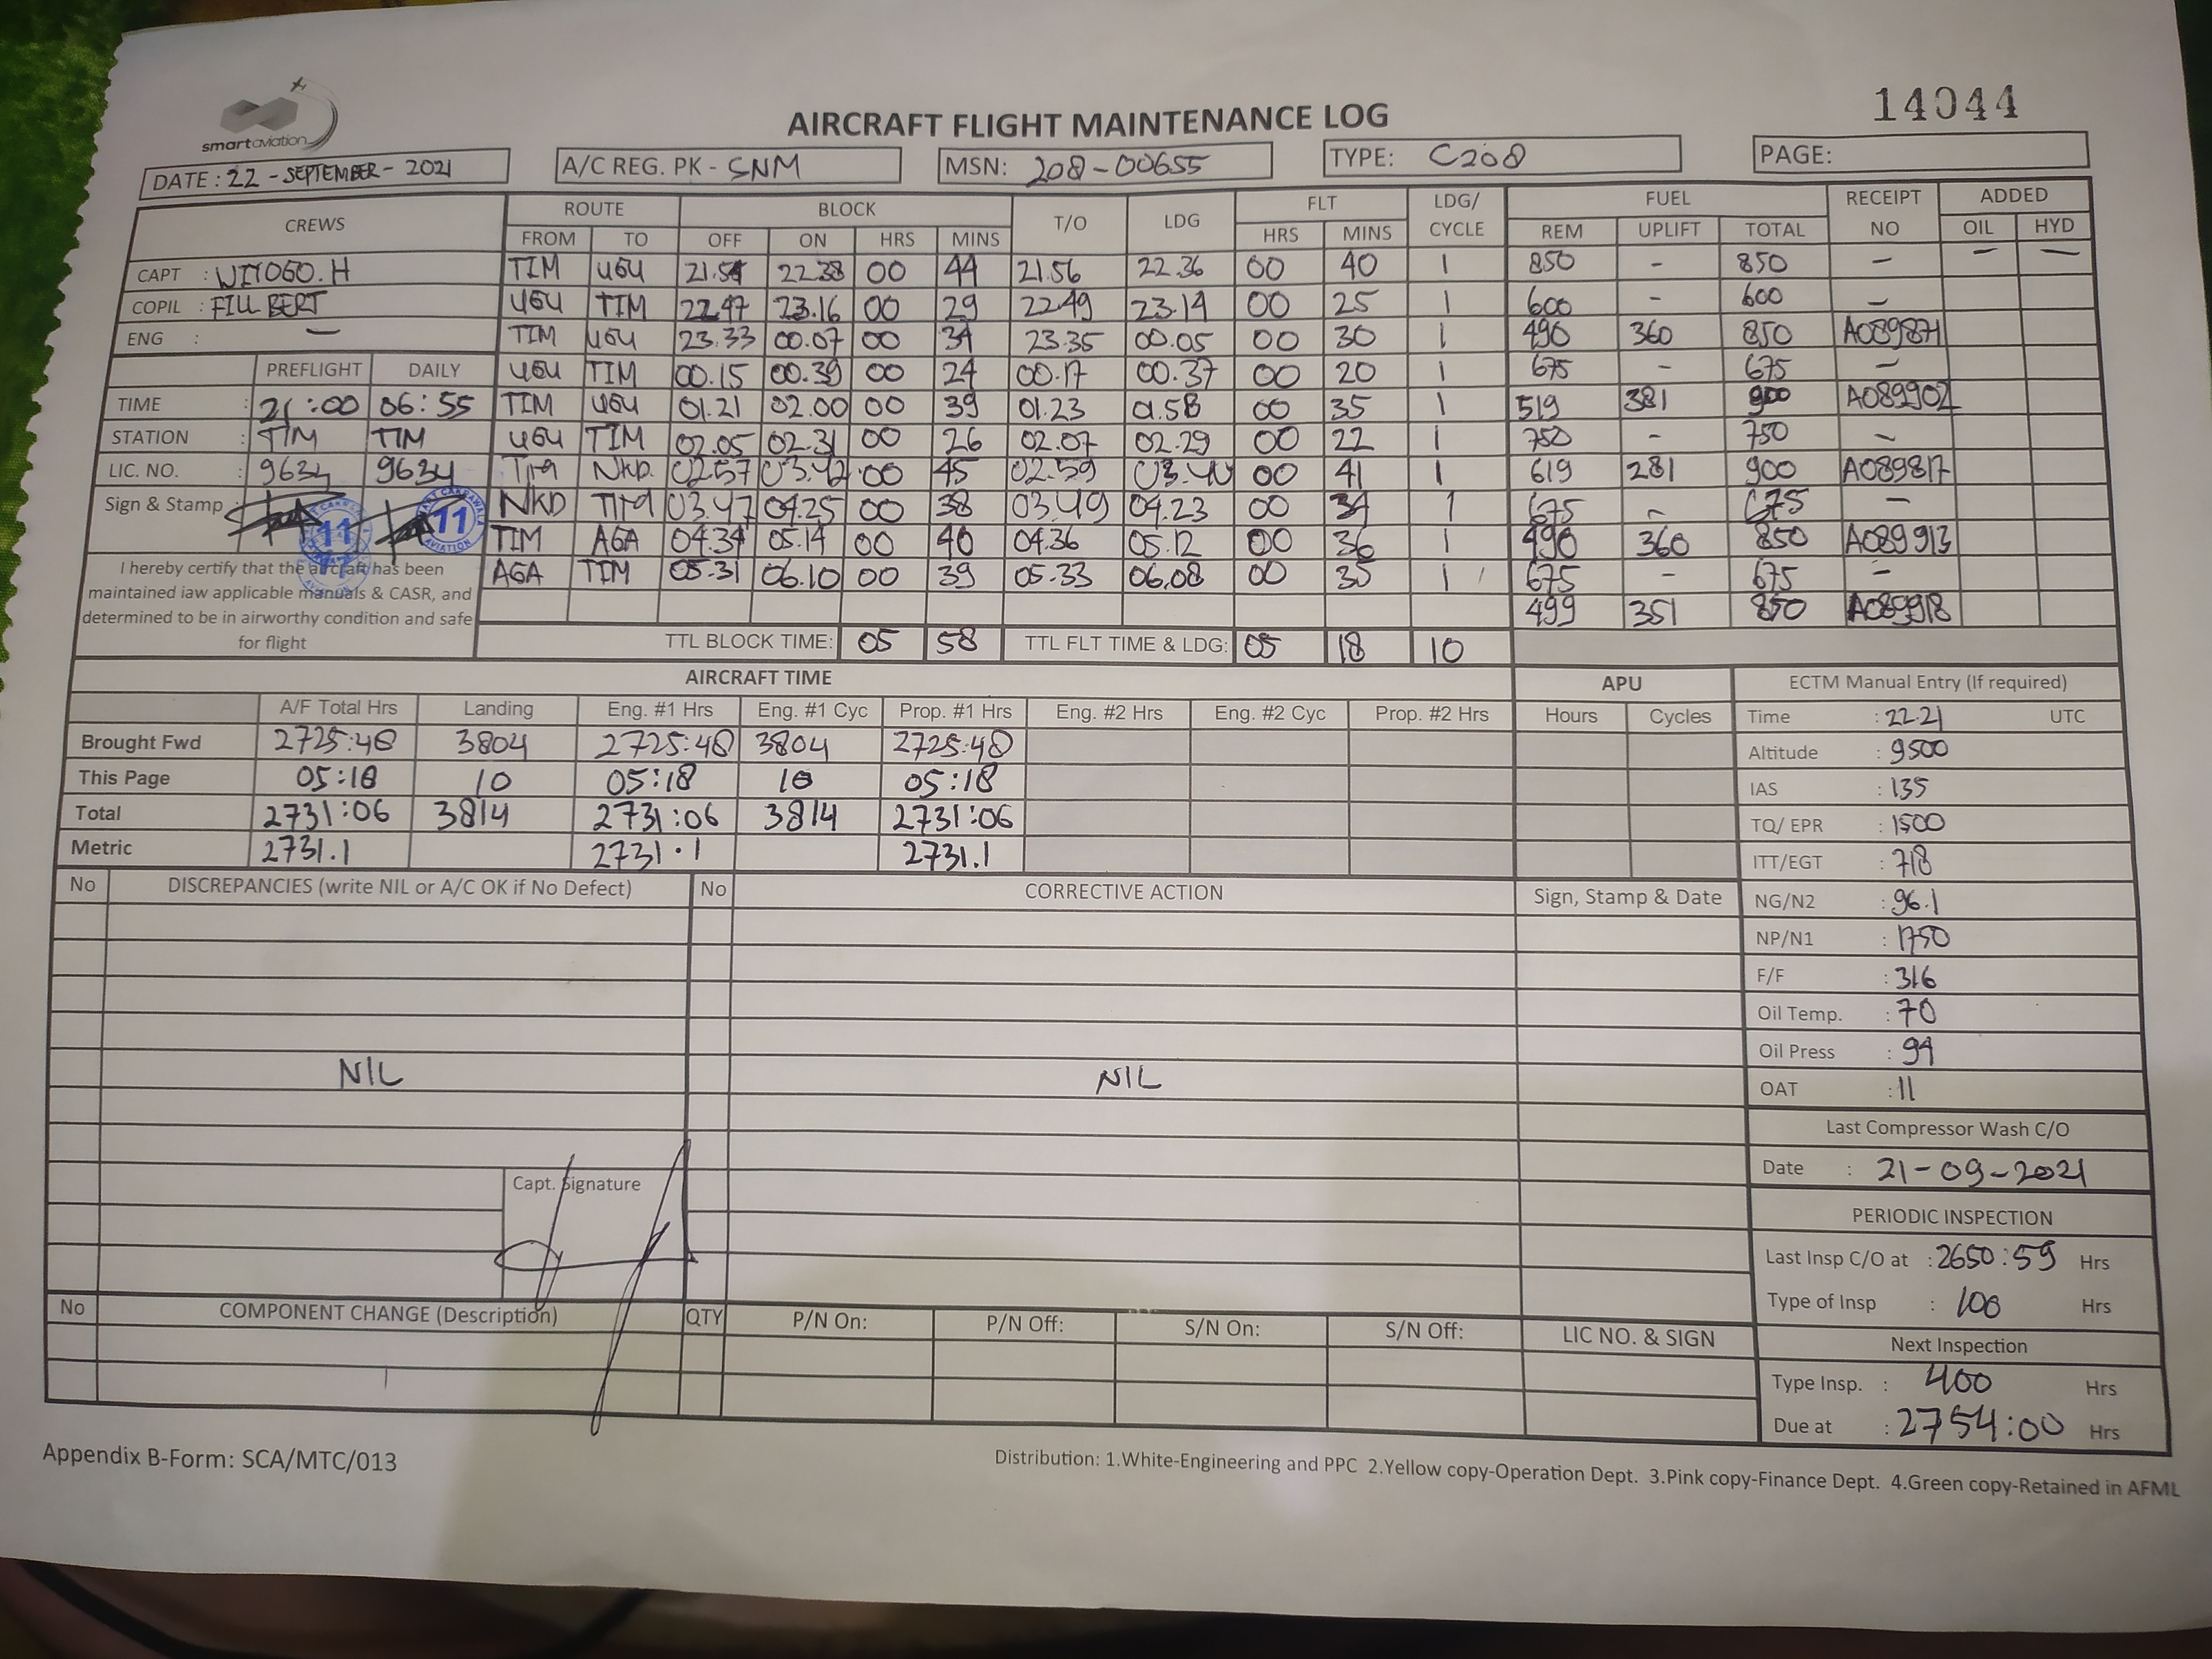 14044
smart aviation
AIRCRAFT FLIGHT MAINTENANCE LOG
DATE : 22 - SEPTEMBER - 2021 A/C REG. PK - SNM MSN: 208-00655 TYPE: C208 PAGE:
CREWS ROUTE BLOCK T/O LDG FLT LDG/ CYCLE FUEL RECEIPT NO ADDED
FROM TO OFF ON HRS MINS HRS MINS REM UPLIFT TOTAL OIL HYD
CAPT : WIYOGO.H TIM UGU 21.54 22.38 00 44 21.56 22.36 00 40 1 850 - 850 - - -
COPIL : FILL BERT UGU TIM 22.47 23.16 00 29 22.49 23.14 00 25 1 600 - 600 -
ENG : - TIM UGU 23.33 00.07 00 34 23.35 00.05 00 30 1 490 360 850 A089871
PREFLIGHT DAILY UGU TIM 00.15 00.39 00 24 00.17 00.37 00 20 1 675 - 675 -
TIME : 21:00 06:55 TIM UGU 01.21 02.00 00 39 01.23 01.58 00 35 1 519 381 900 A089902
STATION : TIM TIM UGU TIM 02.05 02.31 00 26 02.07 02.29 00 22 1 750 - 750 -
LIC. NO. : 9634 9634 TIM NKD. 02.57 03.42 00 45 02.59 03.40 00 41 1 619 281 900 A089817
Sign & Stamp : 11 11 NKD TIM 03.47 04.25 00 38 03.49 04.23 00 34 1 675 - 675 -
TIM AGA 04.34 05.14 00 40 04.36 05.12 00 36 1 490 360 850 A089913
AGA TIM 05.31 06.10 00 39 05.33 06.08 00 35 1 675 - 675 -
499 351 850 A089918
I hereby certify that the aircraft has been
maintained iaw applicable manuals & CASR, and
determined to be in airworthy condition and safe
for flight
TTL BLOCK TIME: 05 58 TTL FLT TIME & LDG: 05 18 10
AIRCRAFT TIME APU ECTM Manual Entry (If required)
A/F Total Hrs Landing Eng. #1 Hrs Eng. #1 Cyc Prop. #1 Hrs Eng. #2 Hrs Eng. #2 Cyc Prop. #2 Hrs Hours Cycles Time : 22.21 UTC
Brought Fwd 2725:48 3804 2725:48 3804 2725:48 Altitude : 9500
This Page 05:18 10 05:18 10 05:18 IAS : 135
Total 2731:06 3814 2731:06 3814 2731:06 TQ/ EPR : 1500
Metric 2731.1 2731.1 2731.1 ITT/EGT : 718
No DISCREPANCIES (write NIL or A/C OK if No Defect) No CORRECTIVE ACTION Sign, Stamp & Date NG/N2 : 96.1
NP/N1 : 1750
F/F : 316
Oil Temp. : 70
Oil Press : 94
NIL NIL
OAT : 11
Last Compressor Wash C/O
Date : 21-09-2021
Capt. Signature
PERIODIC INSPECTION
Last Insp C/O at : 2650:59 Hrs
Type of Insp : 100 Hrs
No COMPONENT CHANGE (Description) QTY P/N On: P/N Off: S/N On: S/N Off: LIC NO. & SIGN
Next Inspection
Type Insp. : 400 Hrs
Due at : 2754:00 Hrs
Appendix B-Form: SCA/MTC/013
Distribution: 1.White-Engineering and PPC 2.Yellow copy-Operation Dept. 3.Pink copy-Finance Dept. 4.Green copy-Retained in AFML